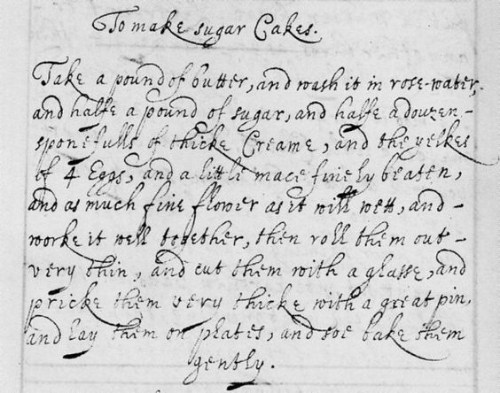 To make sugar Cakes.
Take a pound of butter, and wash it in rose-water,
and halfe a pound of sugar, and halfe a douzen-
sponefulls of thicke Creame, and the yelkes
of 4 Eggs, and a little mace finely beaten,
and as much fine flower as it will wett, and-
worke it well together, then roll them out-
very thin, and cut them with a glasse, and
pricke them very thicke with a great pin,
and lay them on plates, and soe bake them
gently.